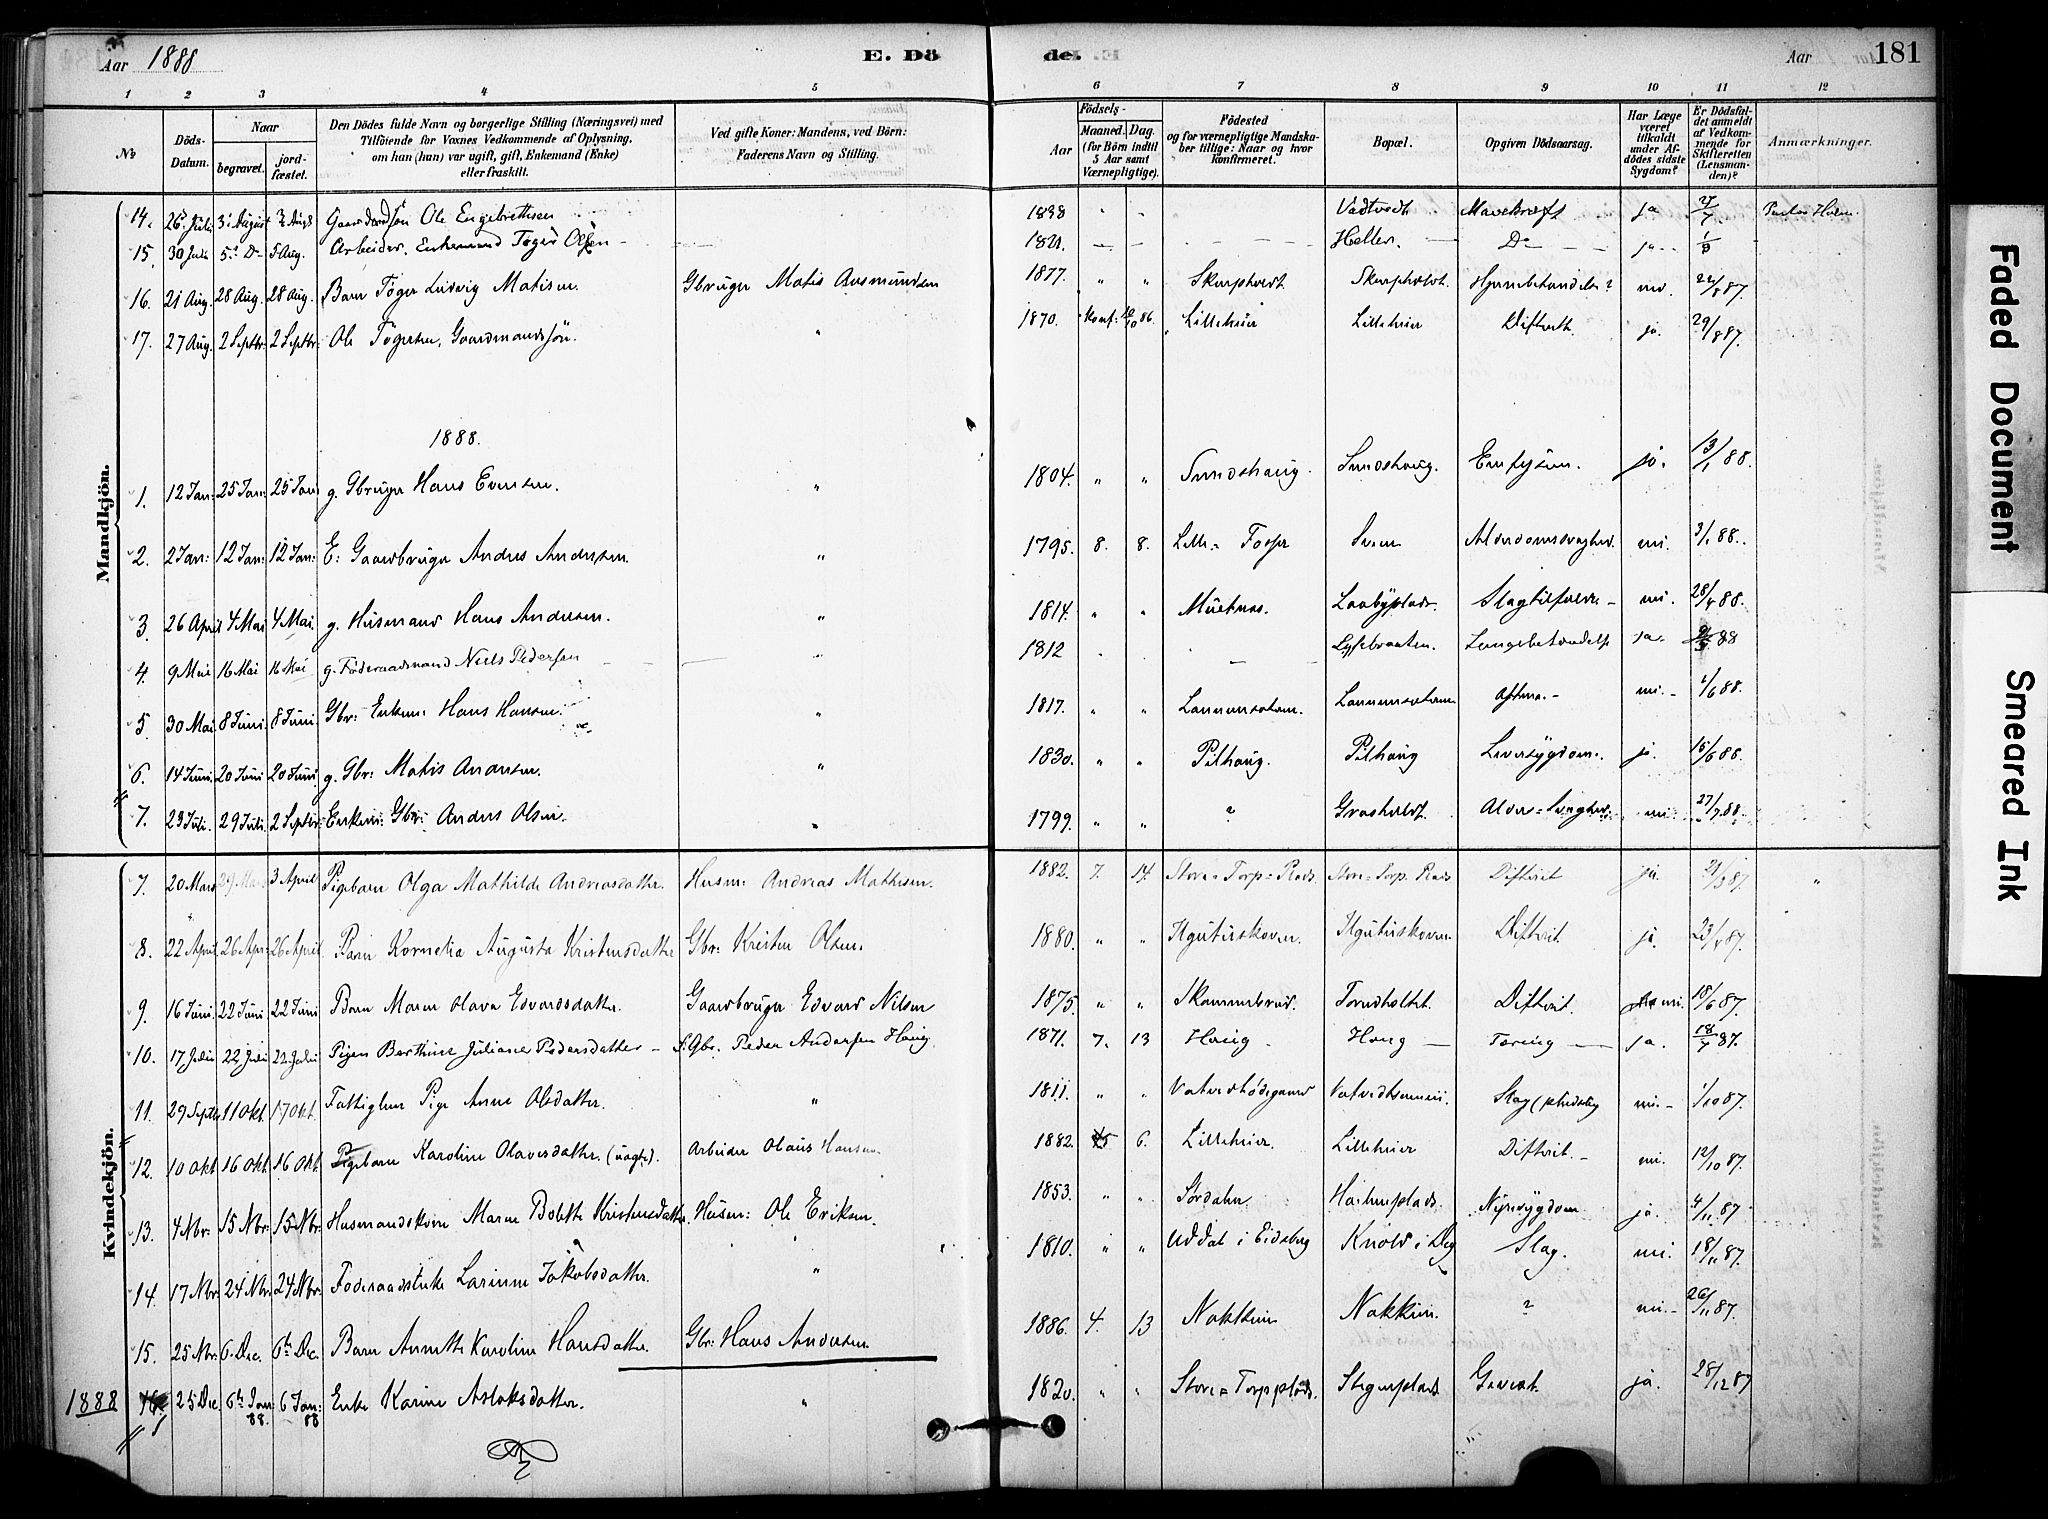 Aar 1888
E. Dö
de.
Aar
181
1 2 3 4 5 6 7 8 9 10 11 12
№
Döds-Datum.
Naar
begravet.
jordfæstet.
Den Dödes fulde Navn og borgerlige Stilling (Næringsvei) med
Tilföiende for Voxnes Vedkommende af Oplysning,
om han (hun) var ugift, gift, Enkemand (Enke)
eller fraskilt.
Ved gifte Koner: Mandens, ved Börn:
Faderens Navn og Stilling.
Födsels-
Aar
Maaned. Dag.
(for Börn indtil
5 Aar samt
Værnepligtige).
Födested
og for værnepligtige Mandskaber tillige: Naar og hvor
konfirmeret.
Bopæl.
Opgiven Dödsaarsag.
Har Læge
været
tilkaldt
under Afdödes sidste
Sygdom?
Er Dödsfaldet anmeldt
af Vedkommende for
Skifteretten
(Lensmanden)?
Anmærkninger.
Mandkjön.
14. 26 Juli 3 August 3 Aug Gaardmandssön Ole Engebrethsen 1838 " " Vadtvedt Mavekræft ja
15. 30 Juli 5 D 5 Aug. Arbeider, Enkemand Töger Olsen 1821. Heller. Do ja
16. 21 Aug. 28 Aug. 28 Aug. Barn Töger Ludvig Matisen Gbruger Matis Aasmundsen 1877. " " Skarpholdt Skarpholdt. Hjernebetændelse? nei. 22/8 87.
17. 27 Aug. 2 Septbr. 2 Septbr. Ole Tögersen, Gaardmandssön. " 1870. Konf: 86. Lilleheier Lilleheier Difterit. ja. 29/8 87.
1888.
1. 12 Jan: 25 Jan: 25 Jan g. Gbruger Hans Evensen. " 1804. " " Sundshaug. Sundshaug. Emfysem. ja. 13/1 88.
2. 2 Jan: 12 Jan: 12 Jan: E: Gaardbruger Anders Andersen. " 1795. 8. 8. Lille-Torper Alderdomssvaghed. nei. 3/1 88.
3. 26 April 4 Mai 4 Mai. g. Husmand Hans Andersen. " 1814. " " Slagtilfælde nei. 28/4 88.
4. 9 Mai 16 Mai 16 Mai g. Föderaadsmand Niels Pedersen 1812 Lysebraaten. Lungebetændelse ja. 88
5. 30 Mai 8 Juni. 8 Juni. Gbr: Enkem: Hans Hansen. " 1817. " " nei. 1/6 88.
6. 14 Juni. 20 Juni 20 Juni g. Gbr: Matis Andersen. " 1830. " " Pilhaug. Pilhaug Leversygdom. ja. 15/6 88.
7. 23 Juli. 29 Juli. 2 Septbr. Enkem: Gbr: Anders Olsen. " 1799. " " ? Grasholdt. Alders-Svaghed. nei. 27/7 88.
Kvindekjön.
7. 20 Mars 29 Mars 3 April Pigebarn Olga Mathilde Andreasdatter. Husm: Andreas Mathisen. 1882. 7. 14. Store-Torp-Plads. Store-Torp Plads Difterit ja. 21/3 87. "
8. 22 April 26 Apr: 26 April Barn Kornelia Augusta Kristensdatter Gbr: Kristen Olsen. 1880. " " Difterit. ja. 23/4 87.
9. 16 Juni. 22 Juni 22 Juni Barn Maren Olava Edvardsdatter. Gaardbruger Edvard Nilsen 1875. " " Skammelsrud. Tornholtet. Difterit. nei. 18/6 87.
10. 17 Juli 22 Juli 22 Juli Pigen Berthine Juliane Pedersdatter Gbr. Peder Andersen Haug. 1871. 7. 13 Haug Haug Tæring ja. 18/7 87.
11. 29 Septbr 11 Okt. 17 Okt. Fattiglem Pige Anne Olsdatter. " 1811. " " Slag nei. 1/10 87.
12. 10 Okt. 16 Okt. 16 Okt. Pigebarn Karoline Olavesdatter. (uægte). Arbeider Olaus Hansen 1882. 5 6. Lilleheier. Lilleheier Difterit. nei. 12/10 87.
13. 4 Nbr: 15 Nbr: 15 Nbr Husmandskone Maren Bolette Kristensdatter. Husm: Ole Eriksen. 1853. " " Sördalen Nyresygdom ja. 4/11 87
14. 17 Nbr: 24 Nbr 24 Nbr: Föderaadsenke Larinne Jakobsdatter. " 1810. " " Uddal i Eidsberg Slag. nei. 18/11 87.
15. 25 Nbr. 6. Dec. 6te Dec. Barn Annette Karoline Hansdatter. Gbr: Hans Andersen. 1886. 4. 13 Nakkim Nakkim. ? nei. 26/11 87.
1888 1 25 Dec. 6te Jan 88. 6 Jan: 88 Enke Karine Aslaksdatter. " 1820. " " Store-Torpplads. Stegenplads ja. 28/12 87
Faded Document
Smeared Ink